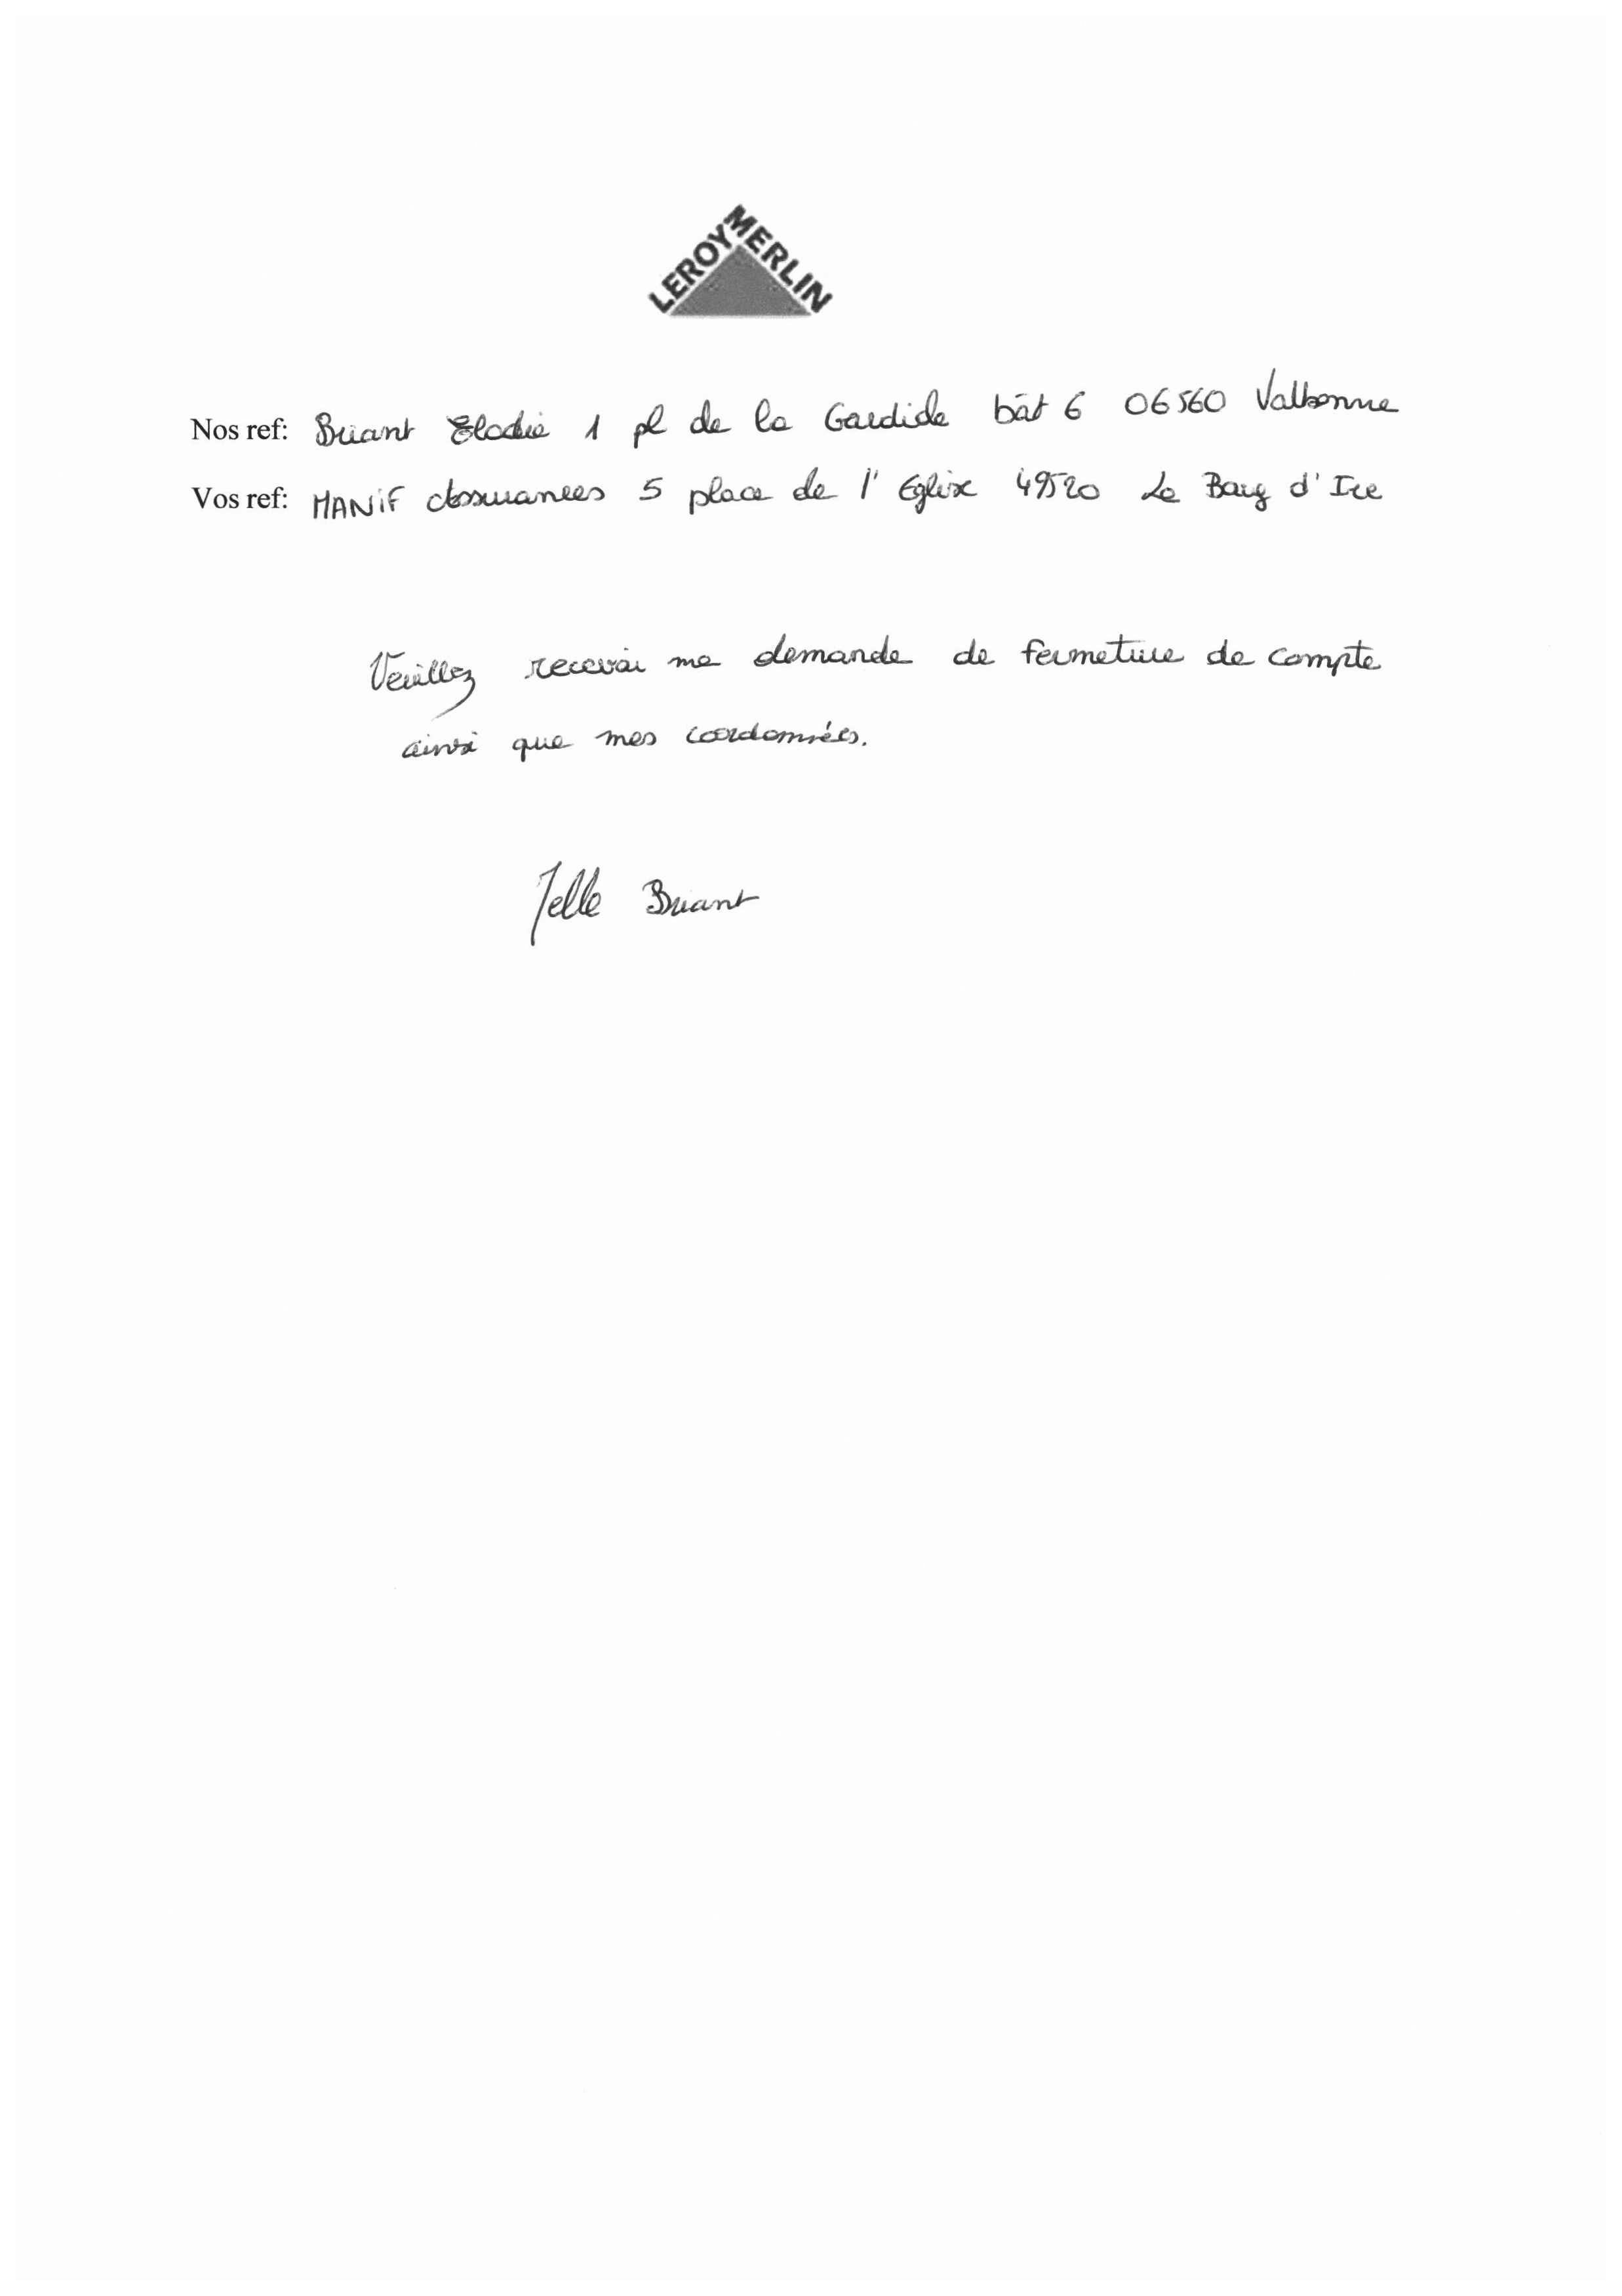 LEROY MERLIN
Nos ref: Briant Elodie 1 pl de la Gardide bât 6 06560 Valbonne
Vos ref: MANIF Assurances 5 place de l'Eglise 49520 Le Bourg d'Ire
Veuillez recevoir ma demande de fermeture de compte
ainsi que mes coordonnées.
Melle Briant